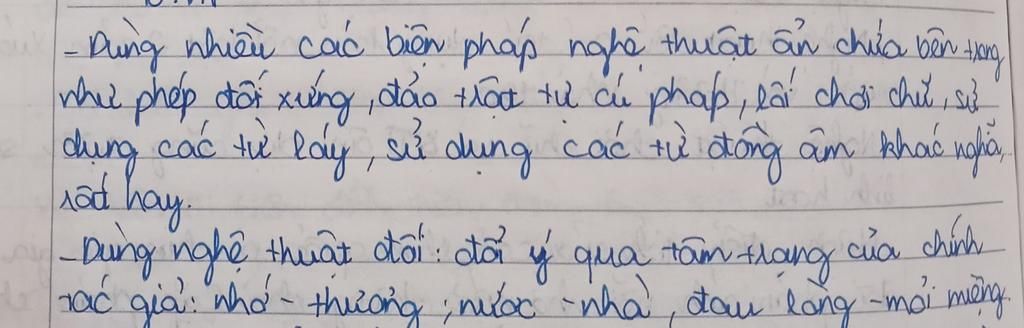 - Dùng nhiều các biện pháp nghệ thuật ẩn chứa bên trong
như phép đối xứng, đảo trật tự cú pháp, lối chơi chữ, sử
dụng các từ láy, sử dụng các từ đồng âm khác nghĩa,
rất hay.
- Dùng nghệ thuật đối: đối ý qua tâm trạng của chính
tác giả: nhớ - thương; nước - nhà, đau lòng - mỏi miệng.